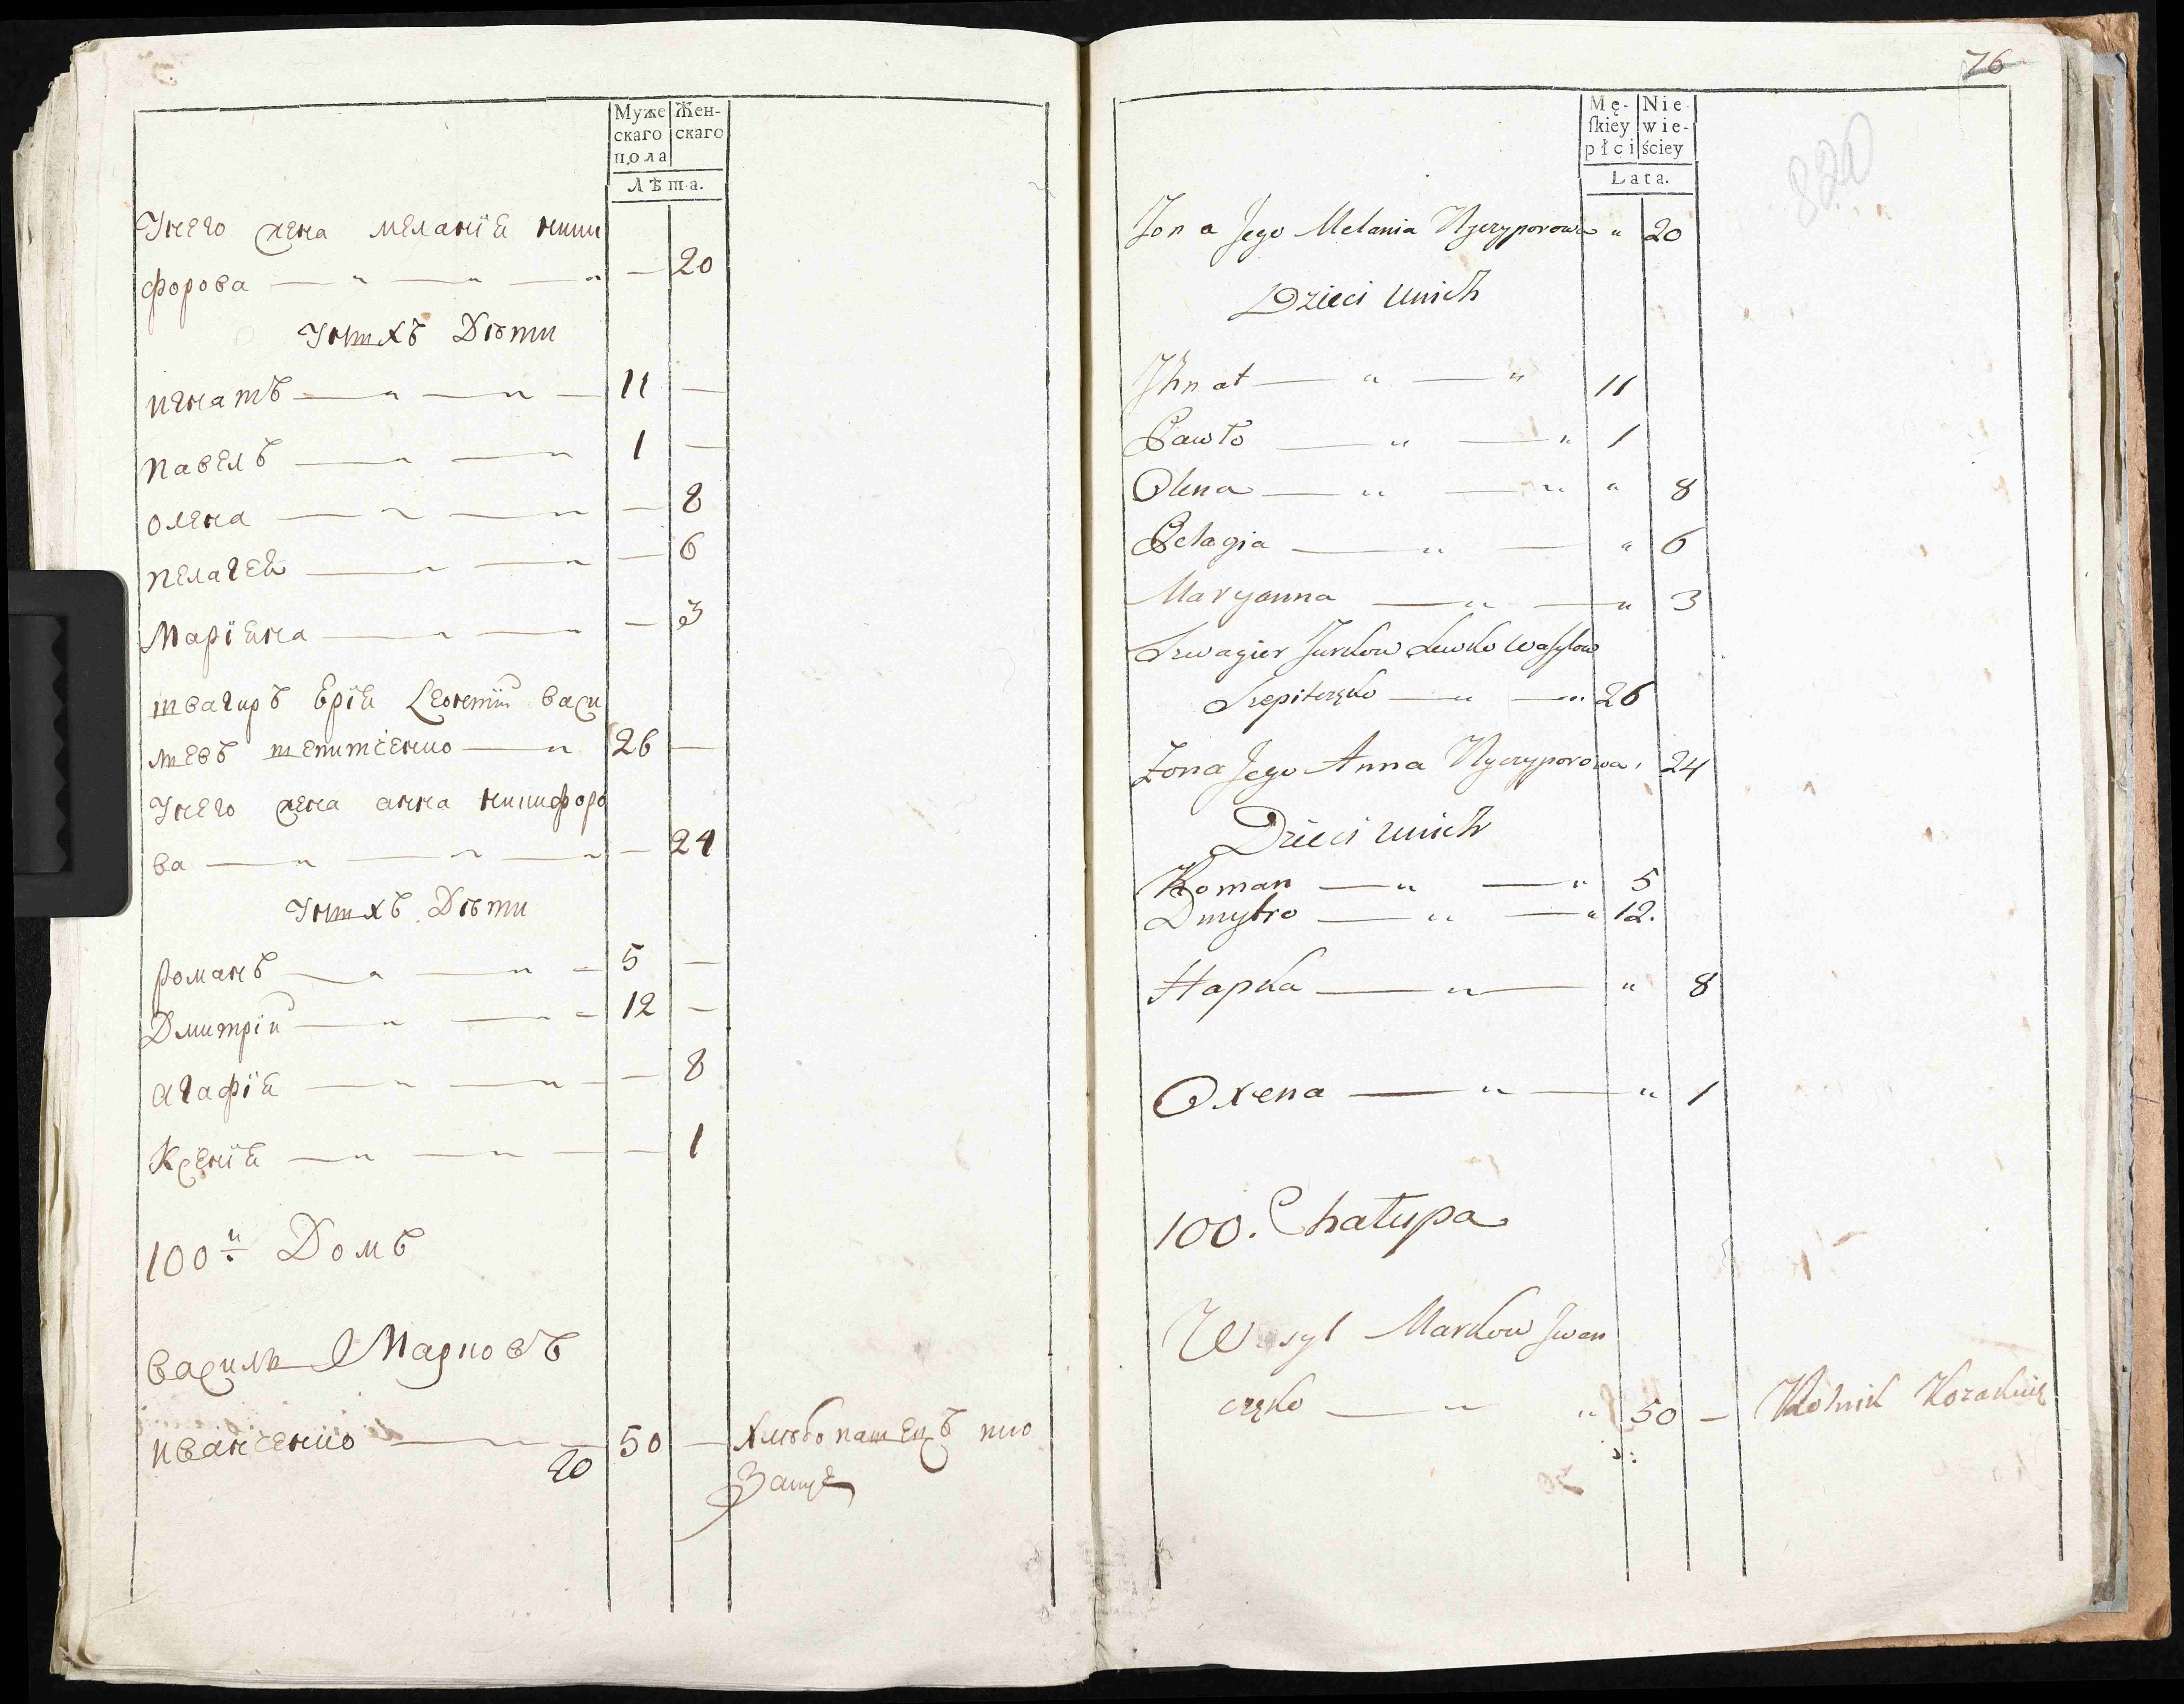 Муже
скаго
пола
Жен-
скаго
Лѣта.
Унего жена меланїя ники
форова — 20
Унихъ Дѣти
игнатъ — 11 —
павелъ — 1 —
олена — 8
пелагея — 6
Марїяна — 3
швагиръ Юрїя Леонтїй васи
льевъ шепитченко — 26 —
Унего жена анна никифоро
ва — 24
Унихъ Дѣти
романъ — 5 —
Дмитрїй — 12 —
агафїя — 8
Ксенїя — 1
100й Домъ
василь Марковъ
иванченко — 50 — хлѣбопашецъ ко
20 заче
76
820
Mę-
ſkiey
płci
Nie-
wie-
ściey
Lata.
Żona Jego Melania Nyczyporowa " 20
Dzieci unich
Ihnat — " — " 11
Pawło — " — " 1
Olena — " — " " 8
Pelagia — " — " 6
Maryanna — " — " 3
Szwagier Jurkow Lewko Wasylow
Szepitczęko — " — " 26
Żona Jego Anna Nyczyporowa 24
Dzieci unich
Roman — " — " 5
Dmytro — " — " 12.
Hapka — " — " 8
Oxena — " — " 1
100. Chałupa
Wasyl Markow Iwan
częko — " " 50 — Rolnik Kozakuie